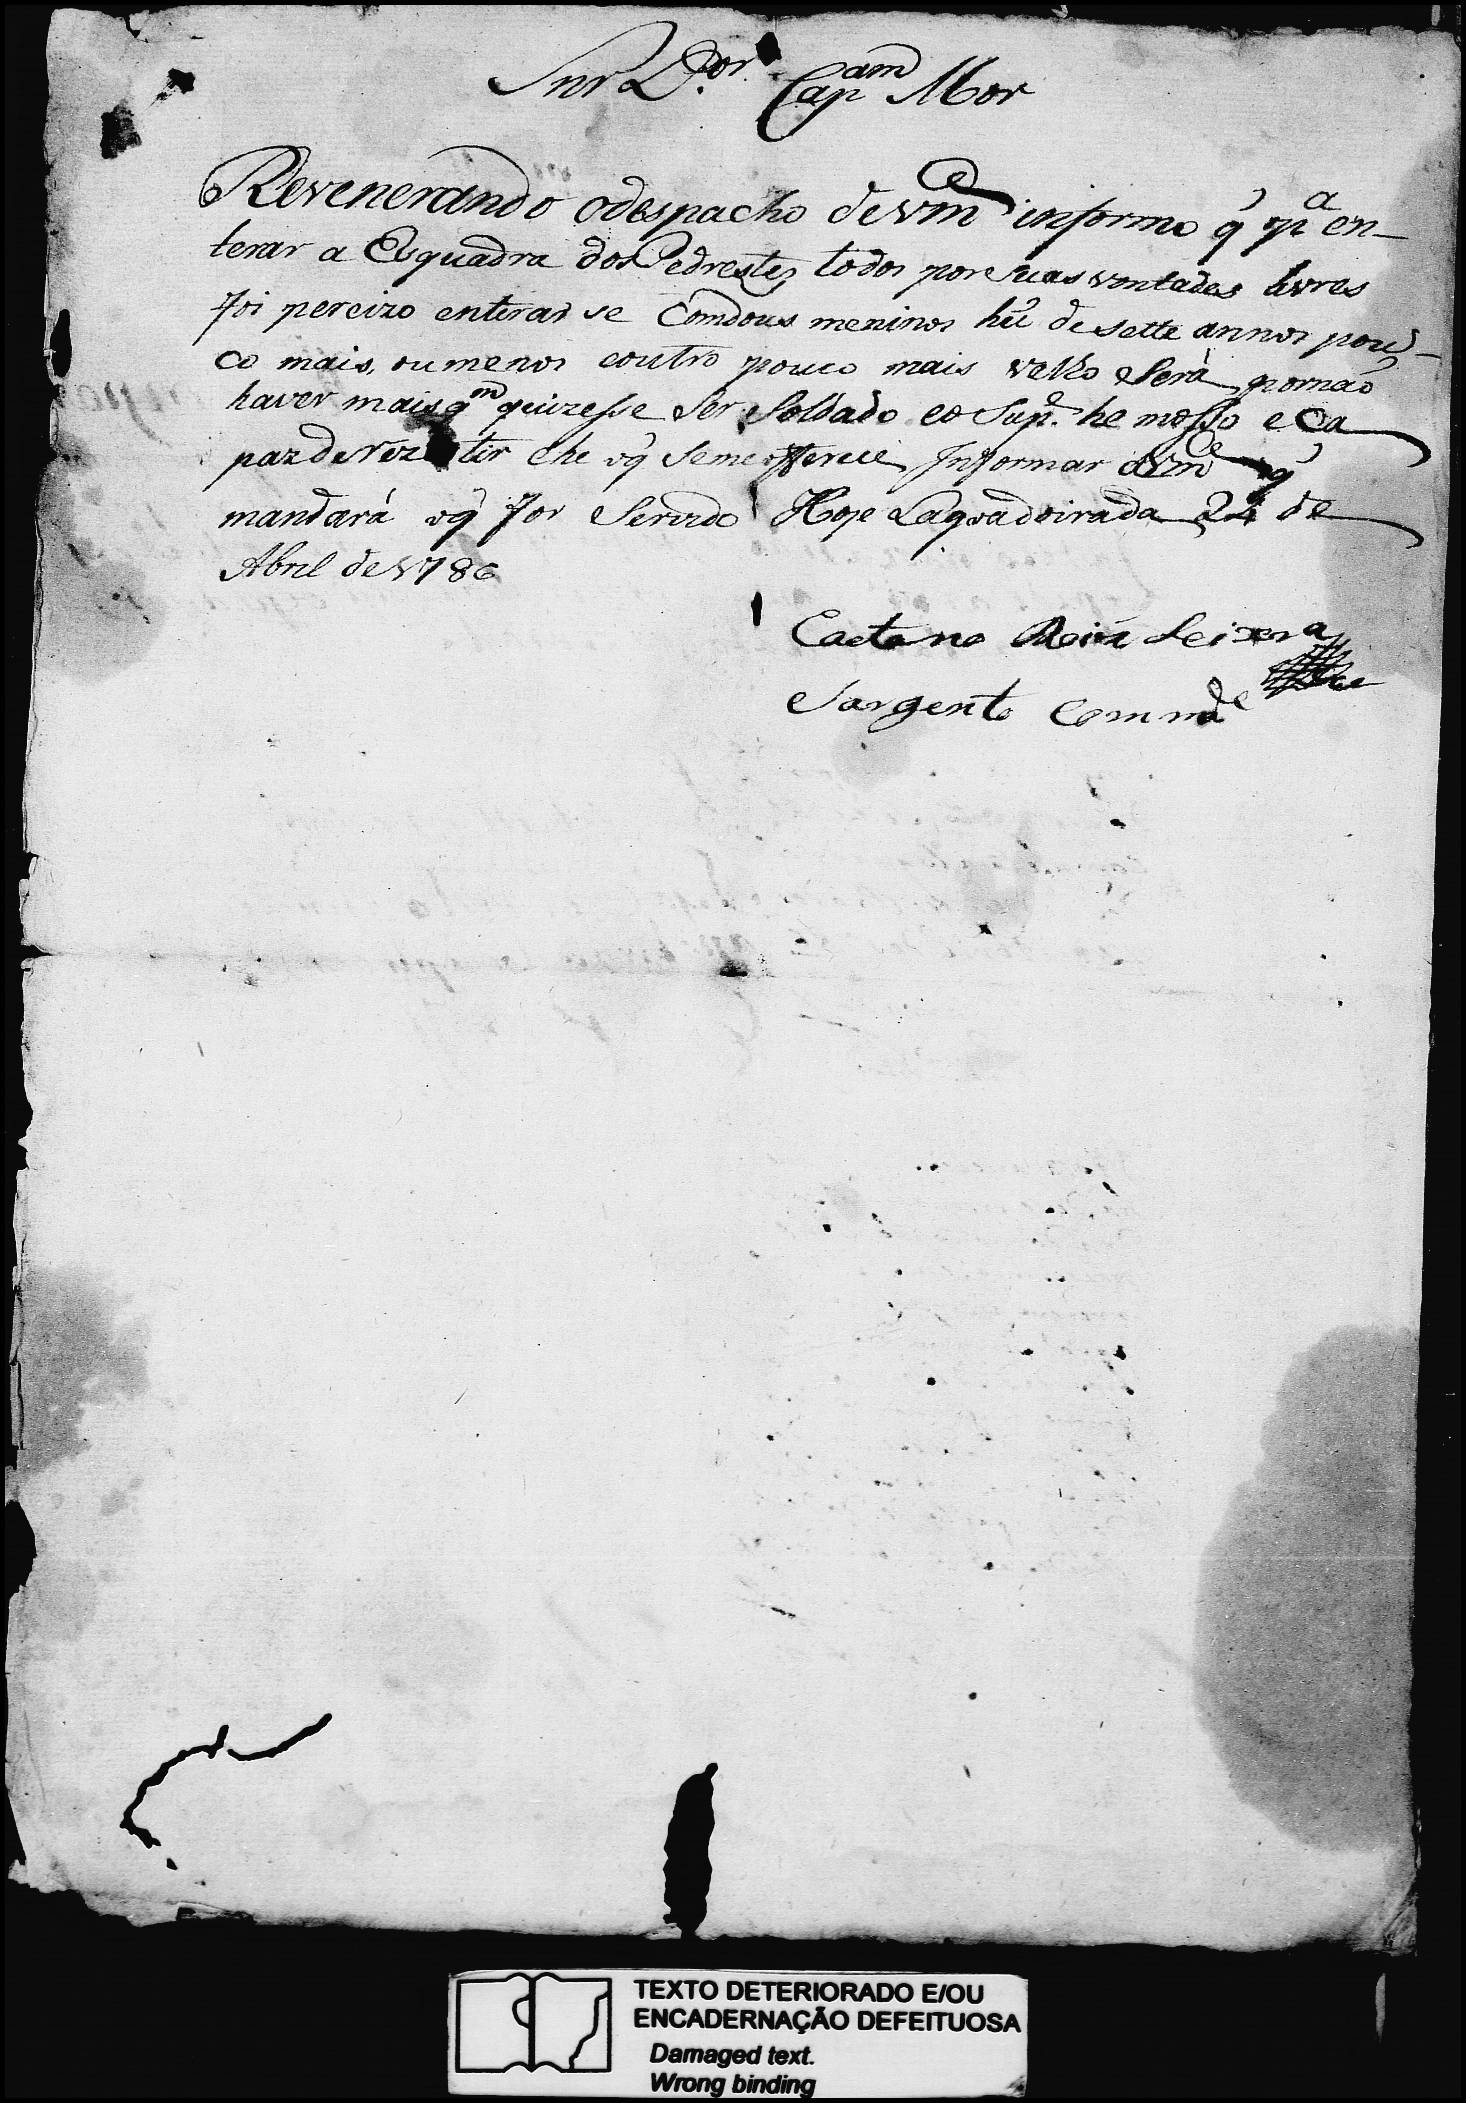 Snr D.or Capam Mor
Revenerando odespacho devmce informo q̃ pa en_
terar a Esquadra dos Pedrestes todos pore suas vontades livres
foi pereizo enterar se Comdous meninos hũ desette annos pou_
co mais, oumenos eoutro pouco mais velho Será pornaõ
haver mais qm quizesse Ser Soldado eo Supe. he mosso e Ca
paz derezistir ehe oq̃ Seme offerece Informar avmce q̃
mandará oq̃ for Servido Hoje Lagoadoirada 24 de
Abril de 1786
Caetano Roiz Seixera
Sargento Commde
TEXTO DETERIORADO E/OU
ENCADERNAÇÃO DEFEITUOSA
Damaged text.
Wrong binding